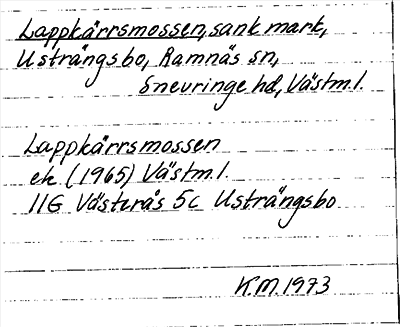 Lappkärrsmossen, sank mark,
Usträngsbo, Ramnäs sn,
Snevringe hd, Västml.
Lappkärrsmossen
ek. (1965) Västml.
11G Västerås 5c Usträngsbo
K.M. 1973